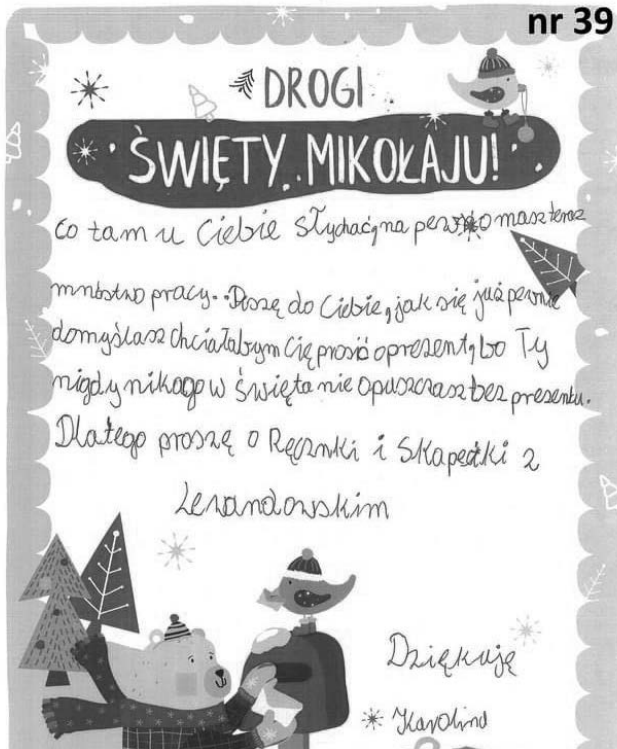 nr 39
DROGI
ŚWIĘTY MIKOŁAJU!
Co tam u Ciebie słychać, na pewno masz teraz
mnóstwo pracy. Piszę do Ciebie, jak się już pewnie
domyślasz Chciałabym Cię prosić o prezent, bo Ty
nigdy nikogo w Święta nie opuszczasz bez presentu.
Dlatego proszę o Ręczniki i Skapetki z
Lewandowskim
Dziękuję
Karolina